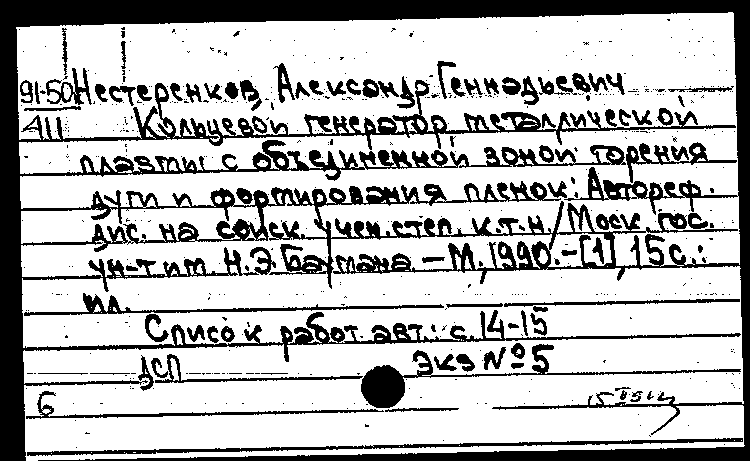 91-50 Нестеренков, Александр Геннадьевич
411 Кольцевой генератор металлической
плазмы с объединенной зоной горения
дуги и формирования пленок: Автореф.
дис. на соиск. учен. степ. к.т.н/Моск. гос.
ун-т им. Н.Э.Баумана. - М., 1990. - [1], 15 с.:
ил.
Список работ авт.: с. 14-15
ДСП Экз № 5
б